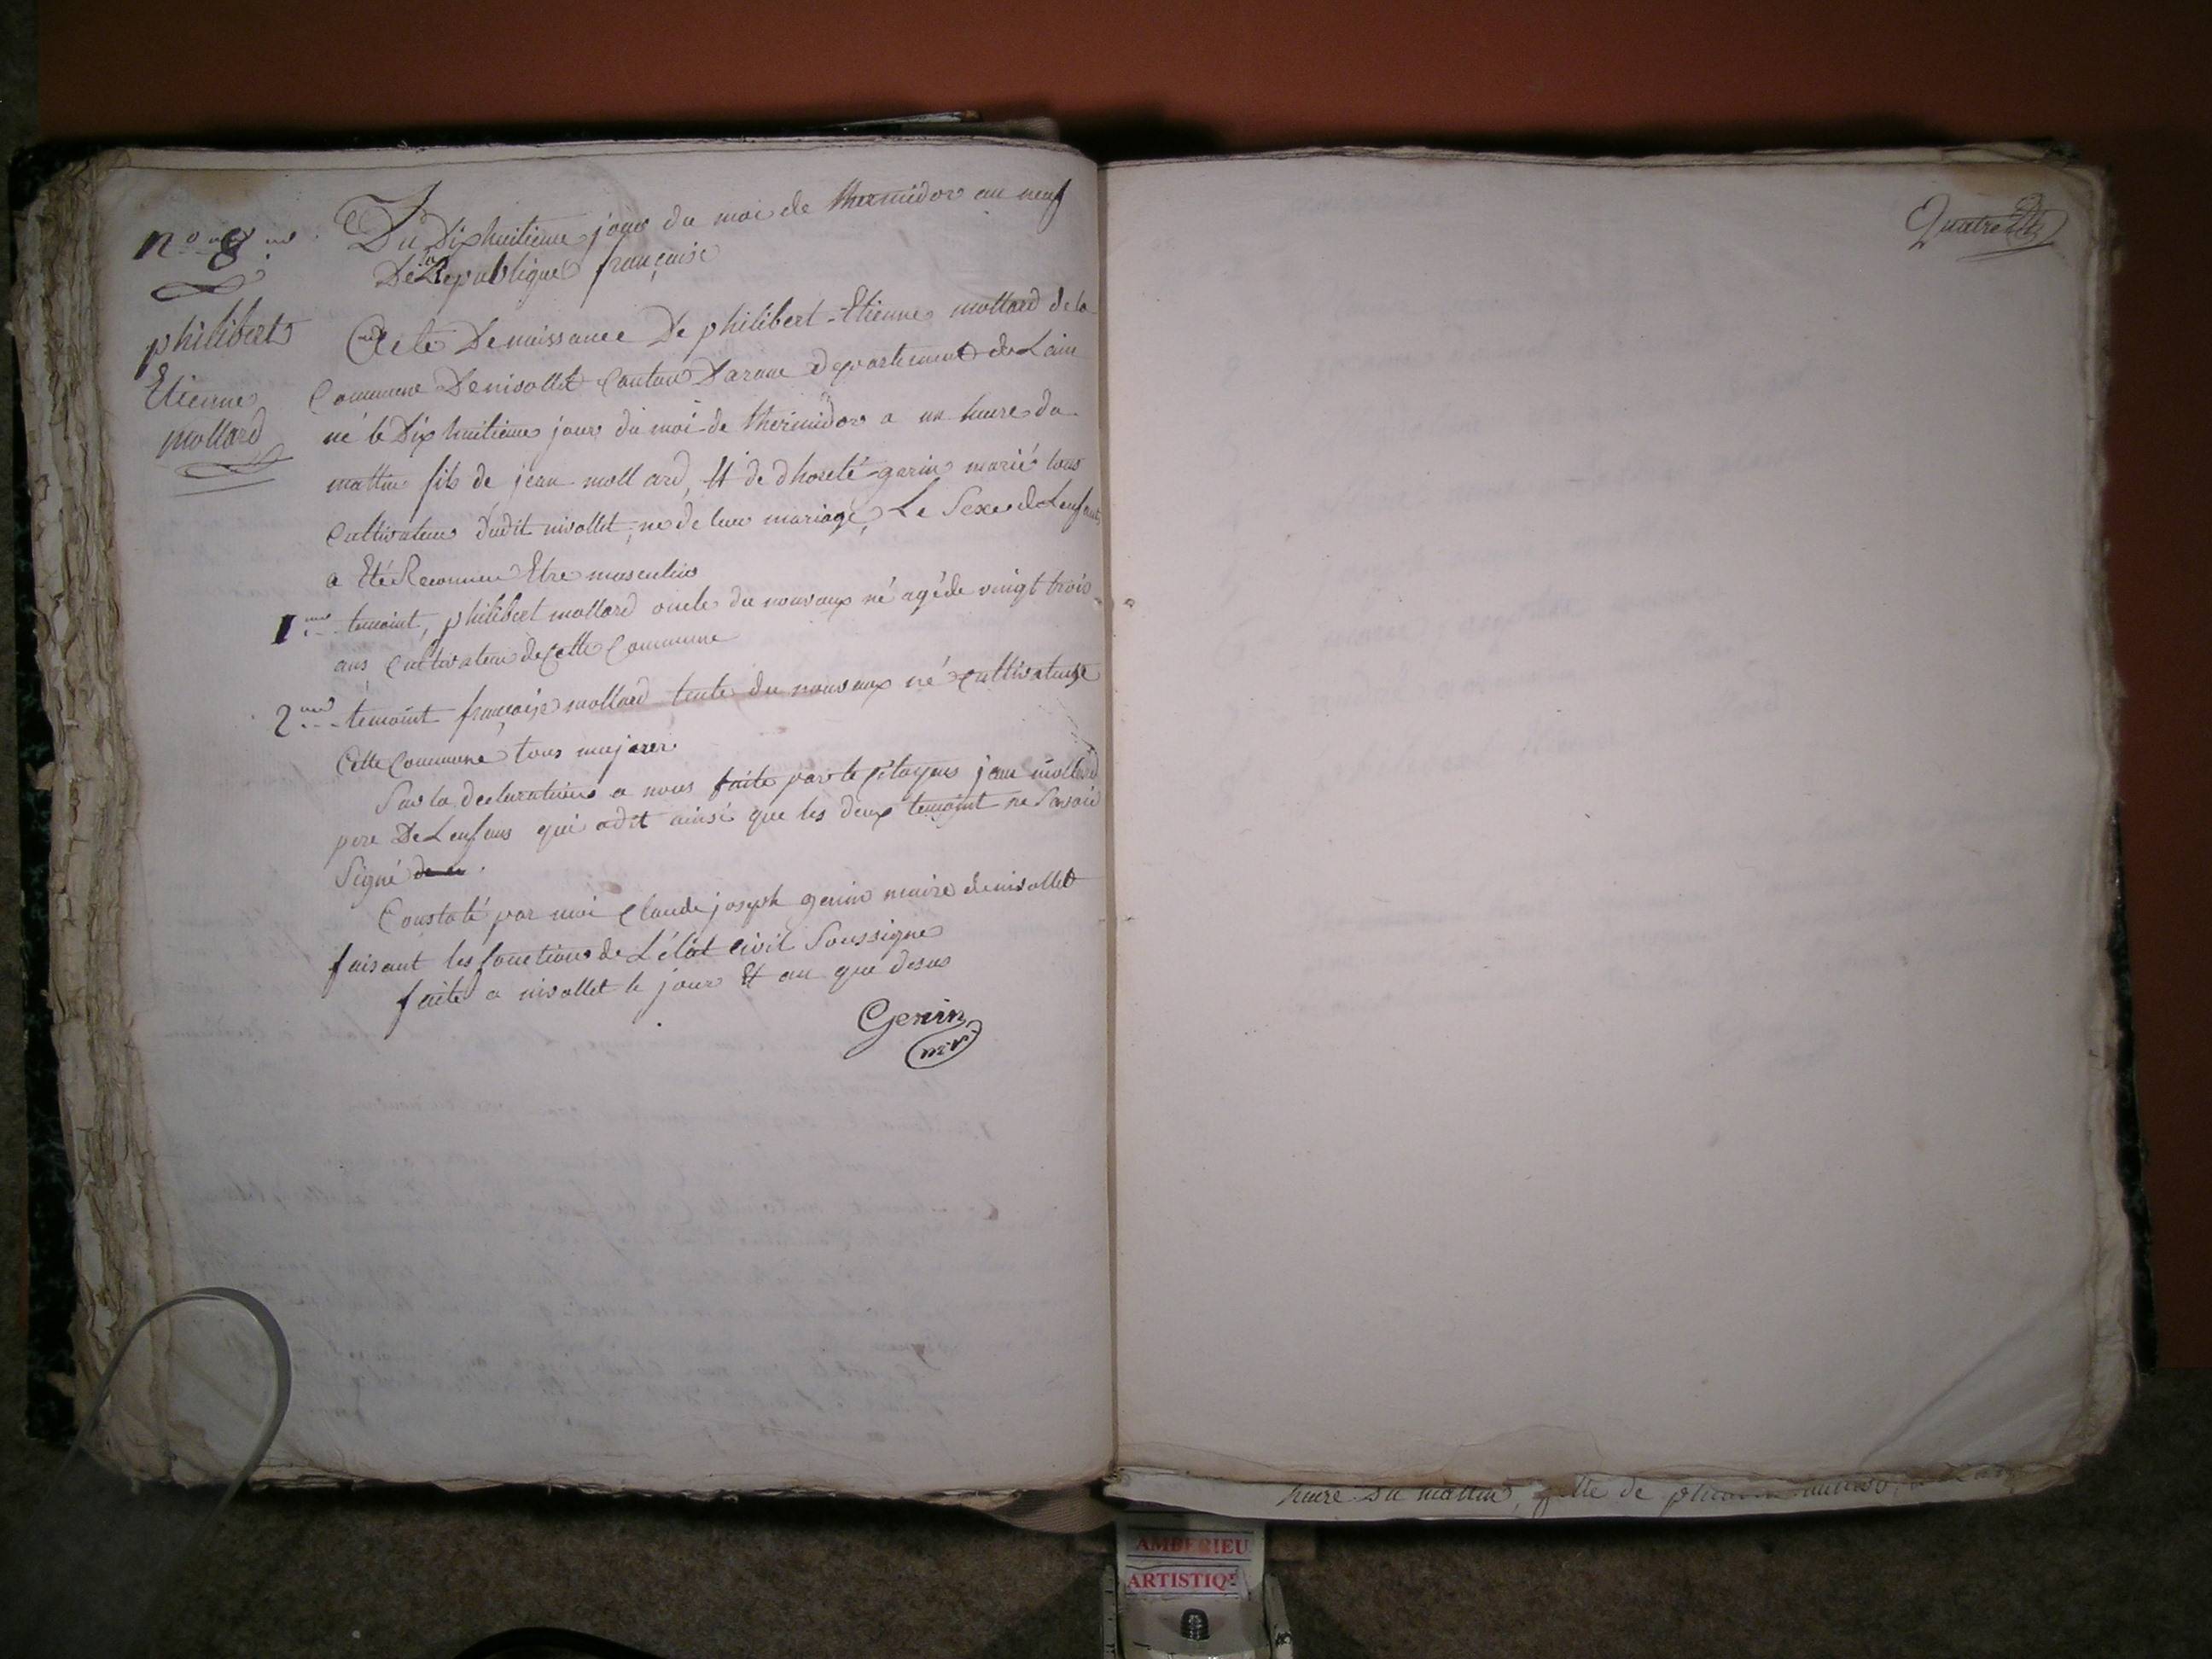 nº 8
Du Dixhuitieme jour du moi de thermidor an neuf
De la Republique françaisi
philibert
Etienne
mollard
Acte De naissance De philibert-Etienne mollard de la
Commune De nivollet Canton Darane departement de Lain
né le Dix huitieme jour du moi de thermidor a un heure du
mattin fils de jean mollard, Et de dhoreté genin marié tous
Cultivateur dudit nivollet, né de leur mariagé, Le Sexe de Lenfant
a Eté Reconnu Etre masculin
1 temoint, philibert mollard oncle du nouvaux né agé de vingt trois
ans Cultivateur de Cette Commune
2 temoint françoise mollard tente du nouvaux né Cultivateuse
Cette Commune tous majeur
Sur la declaration a nous faite par le Citoyens jean mollard
pere De Lenfans qui adit ainsi que les deux temoint ne Savoir
Signé
Constaté par moi Claude joseph genin maire de nivollet
faisant les fonctions de L'état Civil Soussigne
faite a nivollet le jour Et an que desus
Genin
heure du mattin, fille de
AMBERIEU
ARTISTIQ